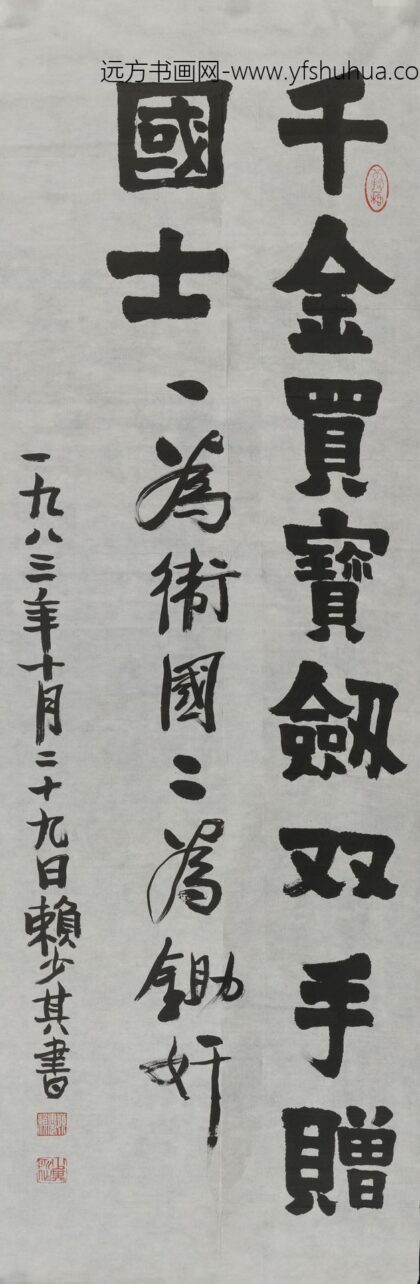 远方书画网-www.yfshuhua.co
千金買寶劔双手贈
國士一為衛國二為鋤奸
一九八三年十月二十九日賴少其書